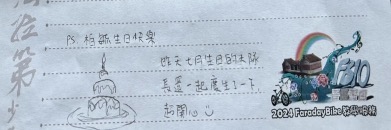 拉第
PS 柏毓生日快樂
昨天七月生日的未隊
長還一起慶生了一下,
超開心
2024 FaradayBike